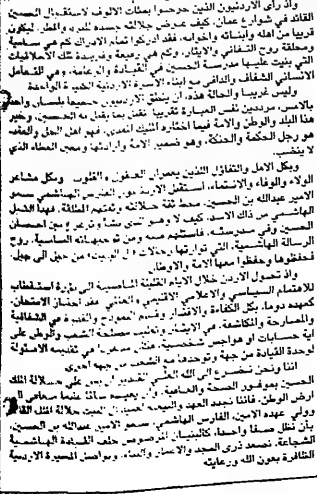 واذ رأى الاردنيون الذين خرجوا بمئات الالوف لاستقبال الحسين
القائد في شوارع عمان، كيف عرض جلالته جسده للبرد والمطر، ليكون
قريبا من اهله وابنائه واخوانه، فقد ادركوا تمام الادراك كم هي سامية
ومحلقة روح التفاني والايثار، وكم هي رفيعة وفريدة تلك الاخلاقيات
التي بنيت عليها مدرسة الحسين في القيادة والزعامة، وهي التعامل
الانساني الشفاف والدافئ مع ابناء الاسرة الاردنية الكبيرة الواحدة
وليس غريبا والحالة هذه، ان ينطق الاردنيون جميعا بلسان واحد
بالامس، مرددين نفس العبارة تقريبا نقبل بما يقبل به الحسين، وخير
هذا البلد والوطن والامة فيما اختاره الحسين، فهو اهل الحل والعقد
هو رجل الحكمة والحنكة، وهو ضمير الامة وارادتها ومعين العطاء الذي
لا ينضب
وبكل الامل والتفاؤل اللذين يعمران العيون و القلوب وبكل مشاعر
الولاء والوفاء والانتماء، استقبل الاردنيون الفارس الهاشمي سمو
الامير عبدالله بن الحسين، محط ثقة جلالته وثقتهم المطلقة، فهذا الشبل
الهاشمي من ذاك الاسد، كيف لا وهو الذي نشأ وترعرع بين احضان
الحسين وفي مدرسته، فاستلهم منه ومن توجيهاته السامية، روح
الرسالة الهاشمية، التي توارثها رجالات ال البيت من جيل الى جيل،
فحفظوها وحفظوا معها الامة والاوطان
واذ تحول الاردن خلال الايام القليلة الماضية الى بؤرة استقطاب
للاهتمام السياسي والاعلامي الاقليمي والعالمي فقد اجتاز الامتحان،
كعهده دوما، بكل الكفاءة والاقتدار وقدم النموذج والقدوة في الشفافية
والمصارحة والمكاشفة، في الايثار وتغليب مصلحة الشعب والوطن على
اية حسابات او هواجس شخصية، مثلما في تقديمه الامثولة
لوحدة القيادة من جهة وتوحدها مع الشعب من جهة اخرى
اننا ونحن نضرع الى الله العلي القدير ان يمن على جلالة الملك
الحسين بموفور الصحة والعافية، وان يعيده سالما غانما معافى الى
ارض الوطن، فاننا نجدد العهد والبيعة لعميد آل البيت جلالة الملك القائد
وولي عهده الامين، الفارس الهاشمي، سمو الامير عبدالله بن الحسين،
بأن نظل صفا واحدا، كالبنيان المرصوص خلف القيادة الهاشمية
الشجاعة، نصعد ذرى المجد والاعمار والبناء، ونواصل المسيرة الاردنية
الظافرة بعون الله ورعايته